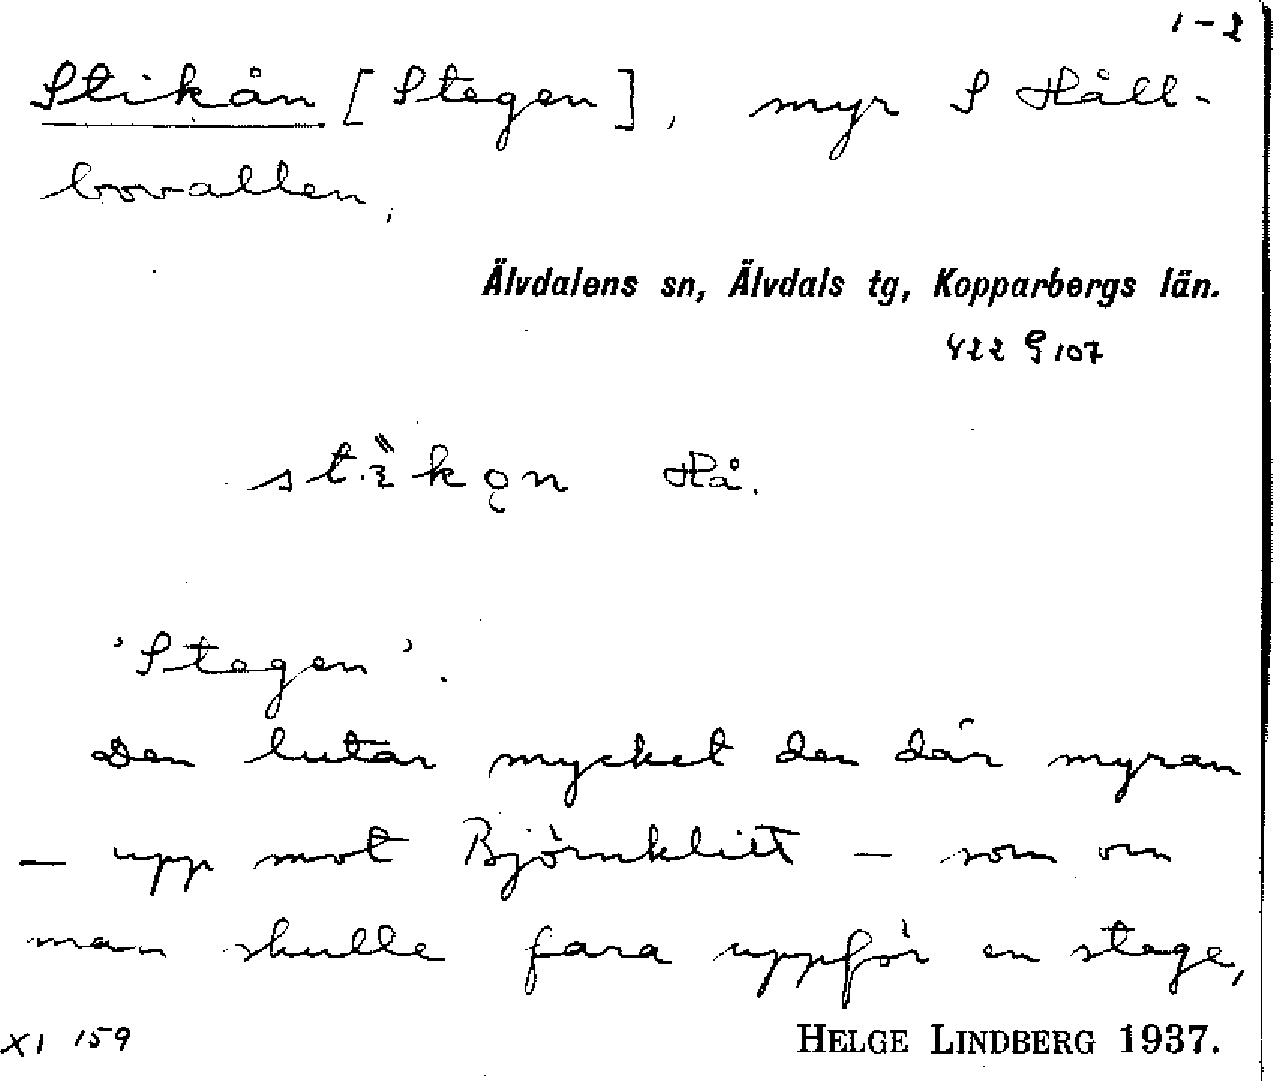 1-2
Stikån [Stegen], myr S Håll-
bovallen,
Älvdalens sn, Älvdals tg, Kopparbergs län.
422 G 107
Hå.
'Stegen'.
Den lutar mycket den där myran
— upp mot Björnklitt — som om
man skulle fara uppför en stege,
XI 159
HELGE LINDBERG 1937.